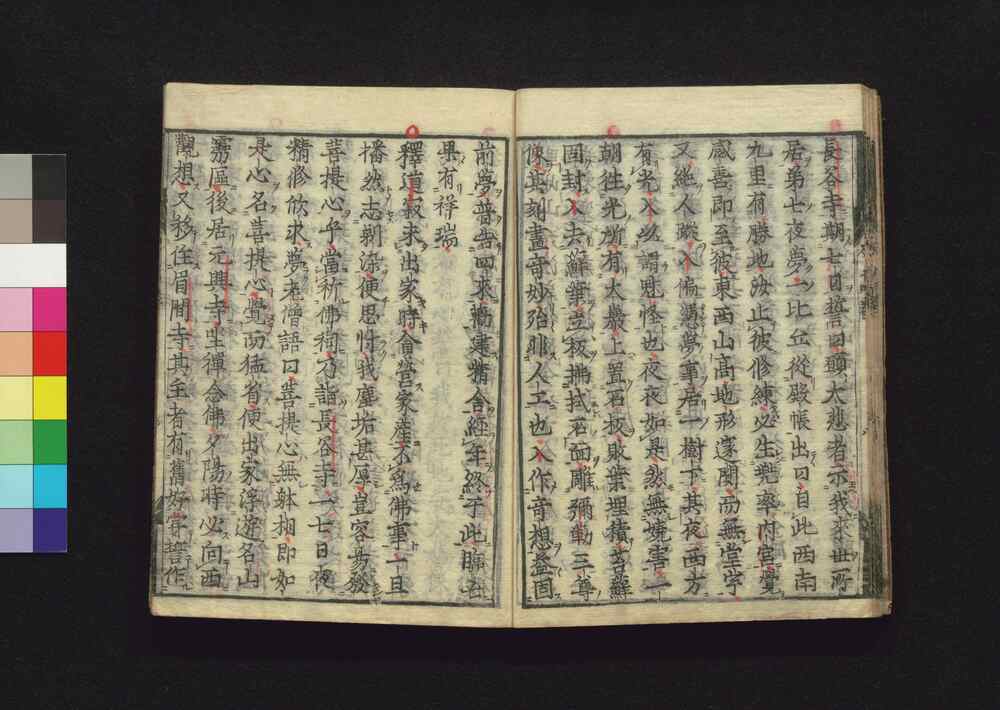 長谷寺期七日誓曰願大悲者示我求世所
居第七夜夢一比丘從殿帳出曰自此西南
九里有勝地汝止彼修練必生兜率内宮覺
感喜即至彼東西山高地形邃閴而無堂宇
又絶人蹤入偏憑夢事居一樹下其夜西方
有光入以謂魅怪也夜夜如是然無嬈害一
朝往光所有大巖上置石板敗葉埋積苔蘚
固封入去蘚葉立板拂拭石面雕彌勒三尊
像其刻畫奇妙殆非人工也入作奇想益固
前夢普告四來輪建精舍經年終于此臨
果有祥瑞
釋道寂未出家時會營家產不爲佛事一旦
旛然志剃染便思忖我塵垢甚厚豈容易發
菩提心乎當祈佛祠乃詣長谷寺一七日夜
精修欣求夢老僧語曰菩提心無躰相即如
是心名菩提心覺而猛省便出家浮遊名山
靈區後居元興寺坐禪念佛夕陽時必向西
觀想又移住眉間寺其主者有舊好常誓作